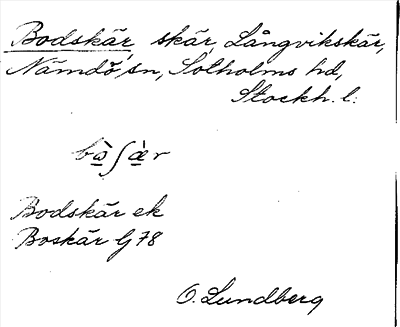 Bodskär, skär, Långvikskär,
Nämdö sn, Sotholms hd,
Stockh. l.
bò̱ʃæ̱̀r
Bodskär ek
Boskär G 78
O. Lundberg